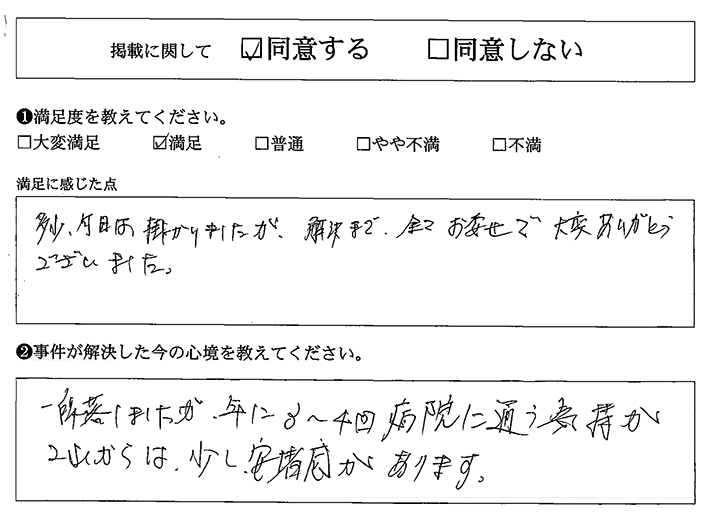 掲載に関して ☑同意する □同意しない
❶満足度を教えてください。
□大変満足 ☑満足 □普通 □やや不満 □不満
満足に感じた点
多少、月日は掛かりましたが、解決まで、全て お任せで 大変ありがとう
ございました。
❷事件が解決した今の心境を教えてください。
一段落しましたが、年に3〜4回病院に通う気持が
これからは、少し、安堵感があります。